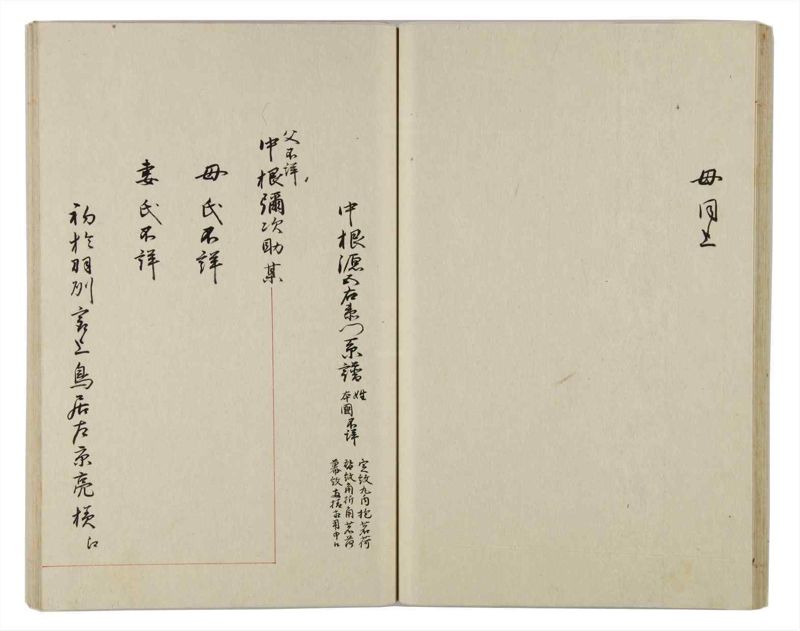 母同上
中根源五右衛門系譜 姓本国不詳
定紋丸内抱茗荷
替紋角折角茗荷
幕紋
父不詳
中根彌次助某
母氏不詳
妻氏不詳
初於羽州最上鳥居左京亮様江